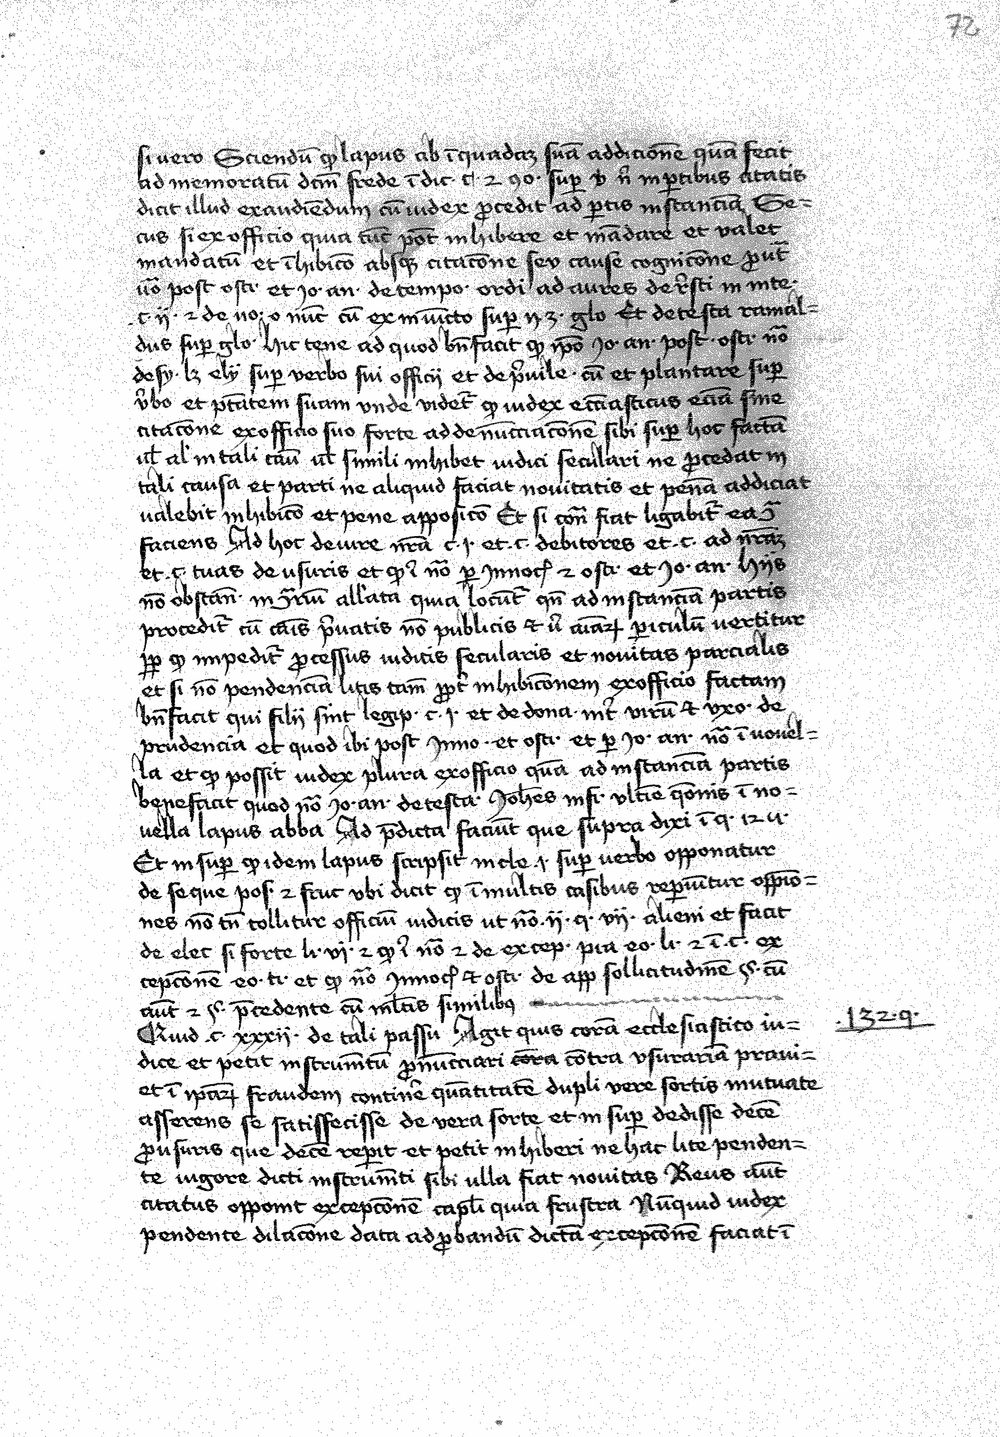 72
si vero Sciendū qp lapus ab ī quadaz suā addicione quā fecit
ad memoratū dcm̄ frede ī dic. c. 2 90. sup v n̄ in ptibus citatis
dicit illud exaudiendum cū iudex pcedit ad ptis instanciā Se=
cus si ex officio quia tūc pōt inhibere et mādare et valet
mandatū et īhibico absqz citacōne seu cause cognicōne put̄
nō post osti. et Jo. an. de tempo. ordi ad aures de r̄sti in inte.
c. ij. 2 de no. o nūc cū ex in iuncto sup n 3. glo Et de testa ramal=
dus sup glo. hic tene ad quod bn̄facit qp ip̄o Jo. an. post. osti. nō
de sy. lz elij sup verbo sui officij et de p̄uile. cū et plantare sup
v̄bo et ptātem suam vnde videt̄ qp iudex eccīasticus eciā sine
citacōne ex officio suo forte ad denūcciacōnē sibi sup hoc factā
ul̄ al' in tali cāu ul̄ simili inhibet iudici seculari ne pcedat in
tali causa et parti ne aliquid faciat nouitatis et penā addiciat
valebit inhibicō et pene apposicō Et si con̄ fiat ligabit̄
faciens Ad hoc de iure nrā c. 1. et. c. debitores et. c. ad nr̄az
et. c. tuas de usuris et qp ī nō p Innoc̄ 2 osti. et Jo. an. hijs
nō obstan̄. in rium allata quia locūt̄ qn̄ ad instanciā partis
procedit̄ cū cāis p̄uatis nō publicis & ū aīaz periculū vertitur
pp qp impedit̄ pcessus iudicis secularis et nouitas parcialis
et si nō pendenciā litis tam̄ ppt̄ inhibicōnem ex officio factam
bn̄facit qui filij sint legip. c. 1. et de dona. int̄ virū & vxo. de
prudencia et quod ibi post Inno. et osti. et p Jo. an. nō ī nouel=
la et qp possit iudex plura ex officio quā ad instanciā partis
benefacit quod nō Jo. an. de testa. Joh̄es infi. vltīe qōnis ī no=
uella lapus abba Ad p̄dicta faciūt que supra dixi ī q. 12 a.
Et in sup qp idem lapus scripsit in cle. 1. sup verbo opponatur
de seque pos. 2 fruc vbi dicit qp ī multis casibus reperiūtur oppio=
nes nō tn̄ tollitur officiū iudicis ut nō. ij. q. vij. alieni et facit
de elec si forte li. vi. 2 qp ī nō 2 de excep. pia eo. li. 2 ī. c. ex
cepcōne eo. ti. et qp nō Innoc̄ & osti. de app sollicitudinē §. cū
aūt 2 §. p̄cedente cū ml̄tis similibz
Quid .c. xxxij. de tali passu Agit quis corā ecclesiastico iu=
dice et petit instrum̄tū p̄nūcciari cora cōtra vsurariā praui=
et ī ip̄az fraudem contin̄e quātitatē dupli vere sortis mutuate
asserens se satisfecisse de vera sorte et in sup dedisse decē
p usuris que decē repit et petit inhiberi ne hac lite penden=
te uigore dicti instrum̄ti sibi ulla fiat nouitas Reus aūt
citatus opponit excepcōnē capli quia frustra Nūquid iudex
pendente dilacōne data ad pbandū dictā excepcōnē faciat ī
.132.q.